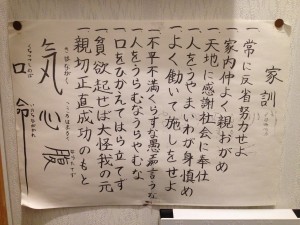 家訓
一常に反省努力せよ
家内仲よく親おがめ
一天地に感謝社会に奉仕
一人をうやまいわが身慎め
一よく働いて施しをせよ
一不平不満くらすな愚痴言うな
一人をうらむなうらやむな
一口をひかえてはら立てず
一貪欲起せば大怪我の元
親切正直成功のもと
気心腹
口命